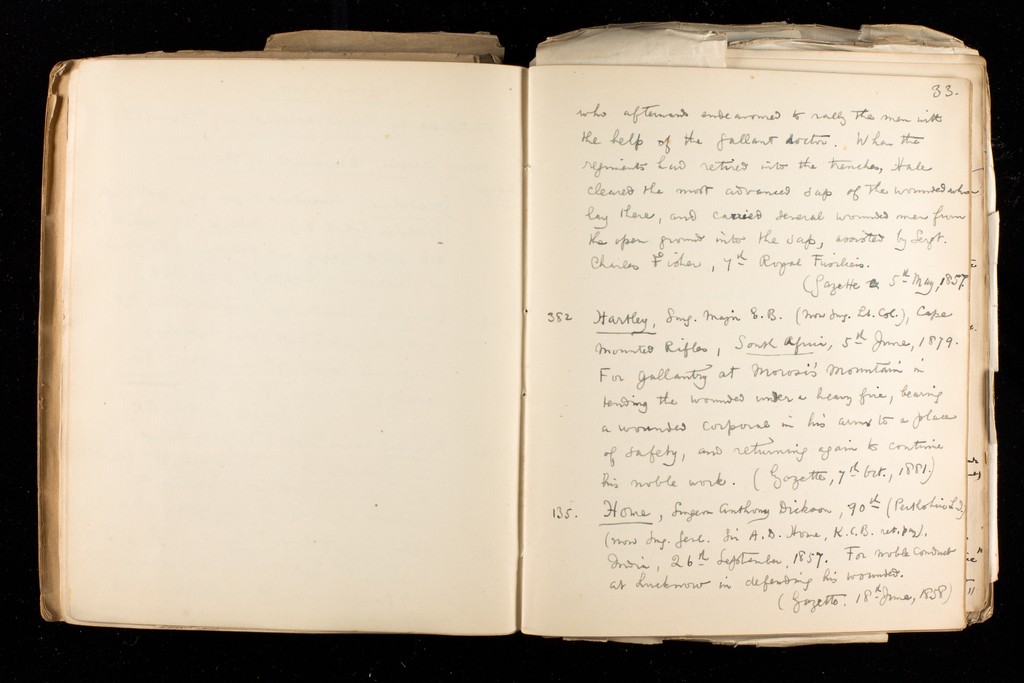 33.
who afterwards endeavoured to rally the men with
the help of the gallant doctor. When the
regiments had retired into the trenches, Hale
cleared the most advanced sap of the wounded who
lay there, and carried several wounded men from
the open ground into the sap, assisted by Sergt.
Charles Fisher, 7th Royal Fusiliers.
(Gazette 5th May, 1857.
382 Hartley, Surg. Major E.B. (now Surg. Lt. Col.), Cape
Mounted Rifles, South Africa, 5th June, 1879.
For gallantry at Morosi's Mountain in
tending the wounded under a heavy fire, bearing
a wounded corporal in his arms to a place
of safety, and returning again to continue
his noble work. (Gazette, 7th Oct., 1881.)
135. Home, Surgeon Anthony Dickson, 90th (Perthshire L.I.)
(now Surg. Genl. Sir A.D. Home, K.C.B. ret. pay).
India, 26th September, 1857. For noble conduct
at Lucknow in defending his wounded.
(Gazette. 18th June, 1858)